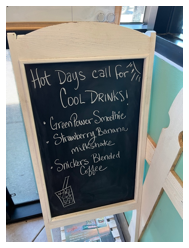 Hot Days call for
COOL DRINKS!
• Green Power Smoothie
• Strawberry Banana
milkshake
• Snickers Blended
Coffee